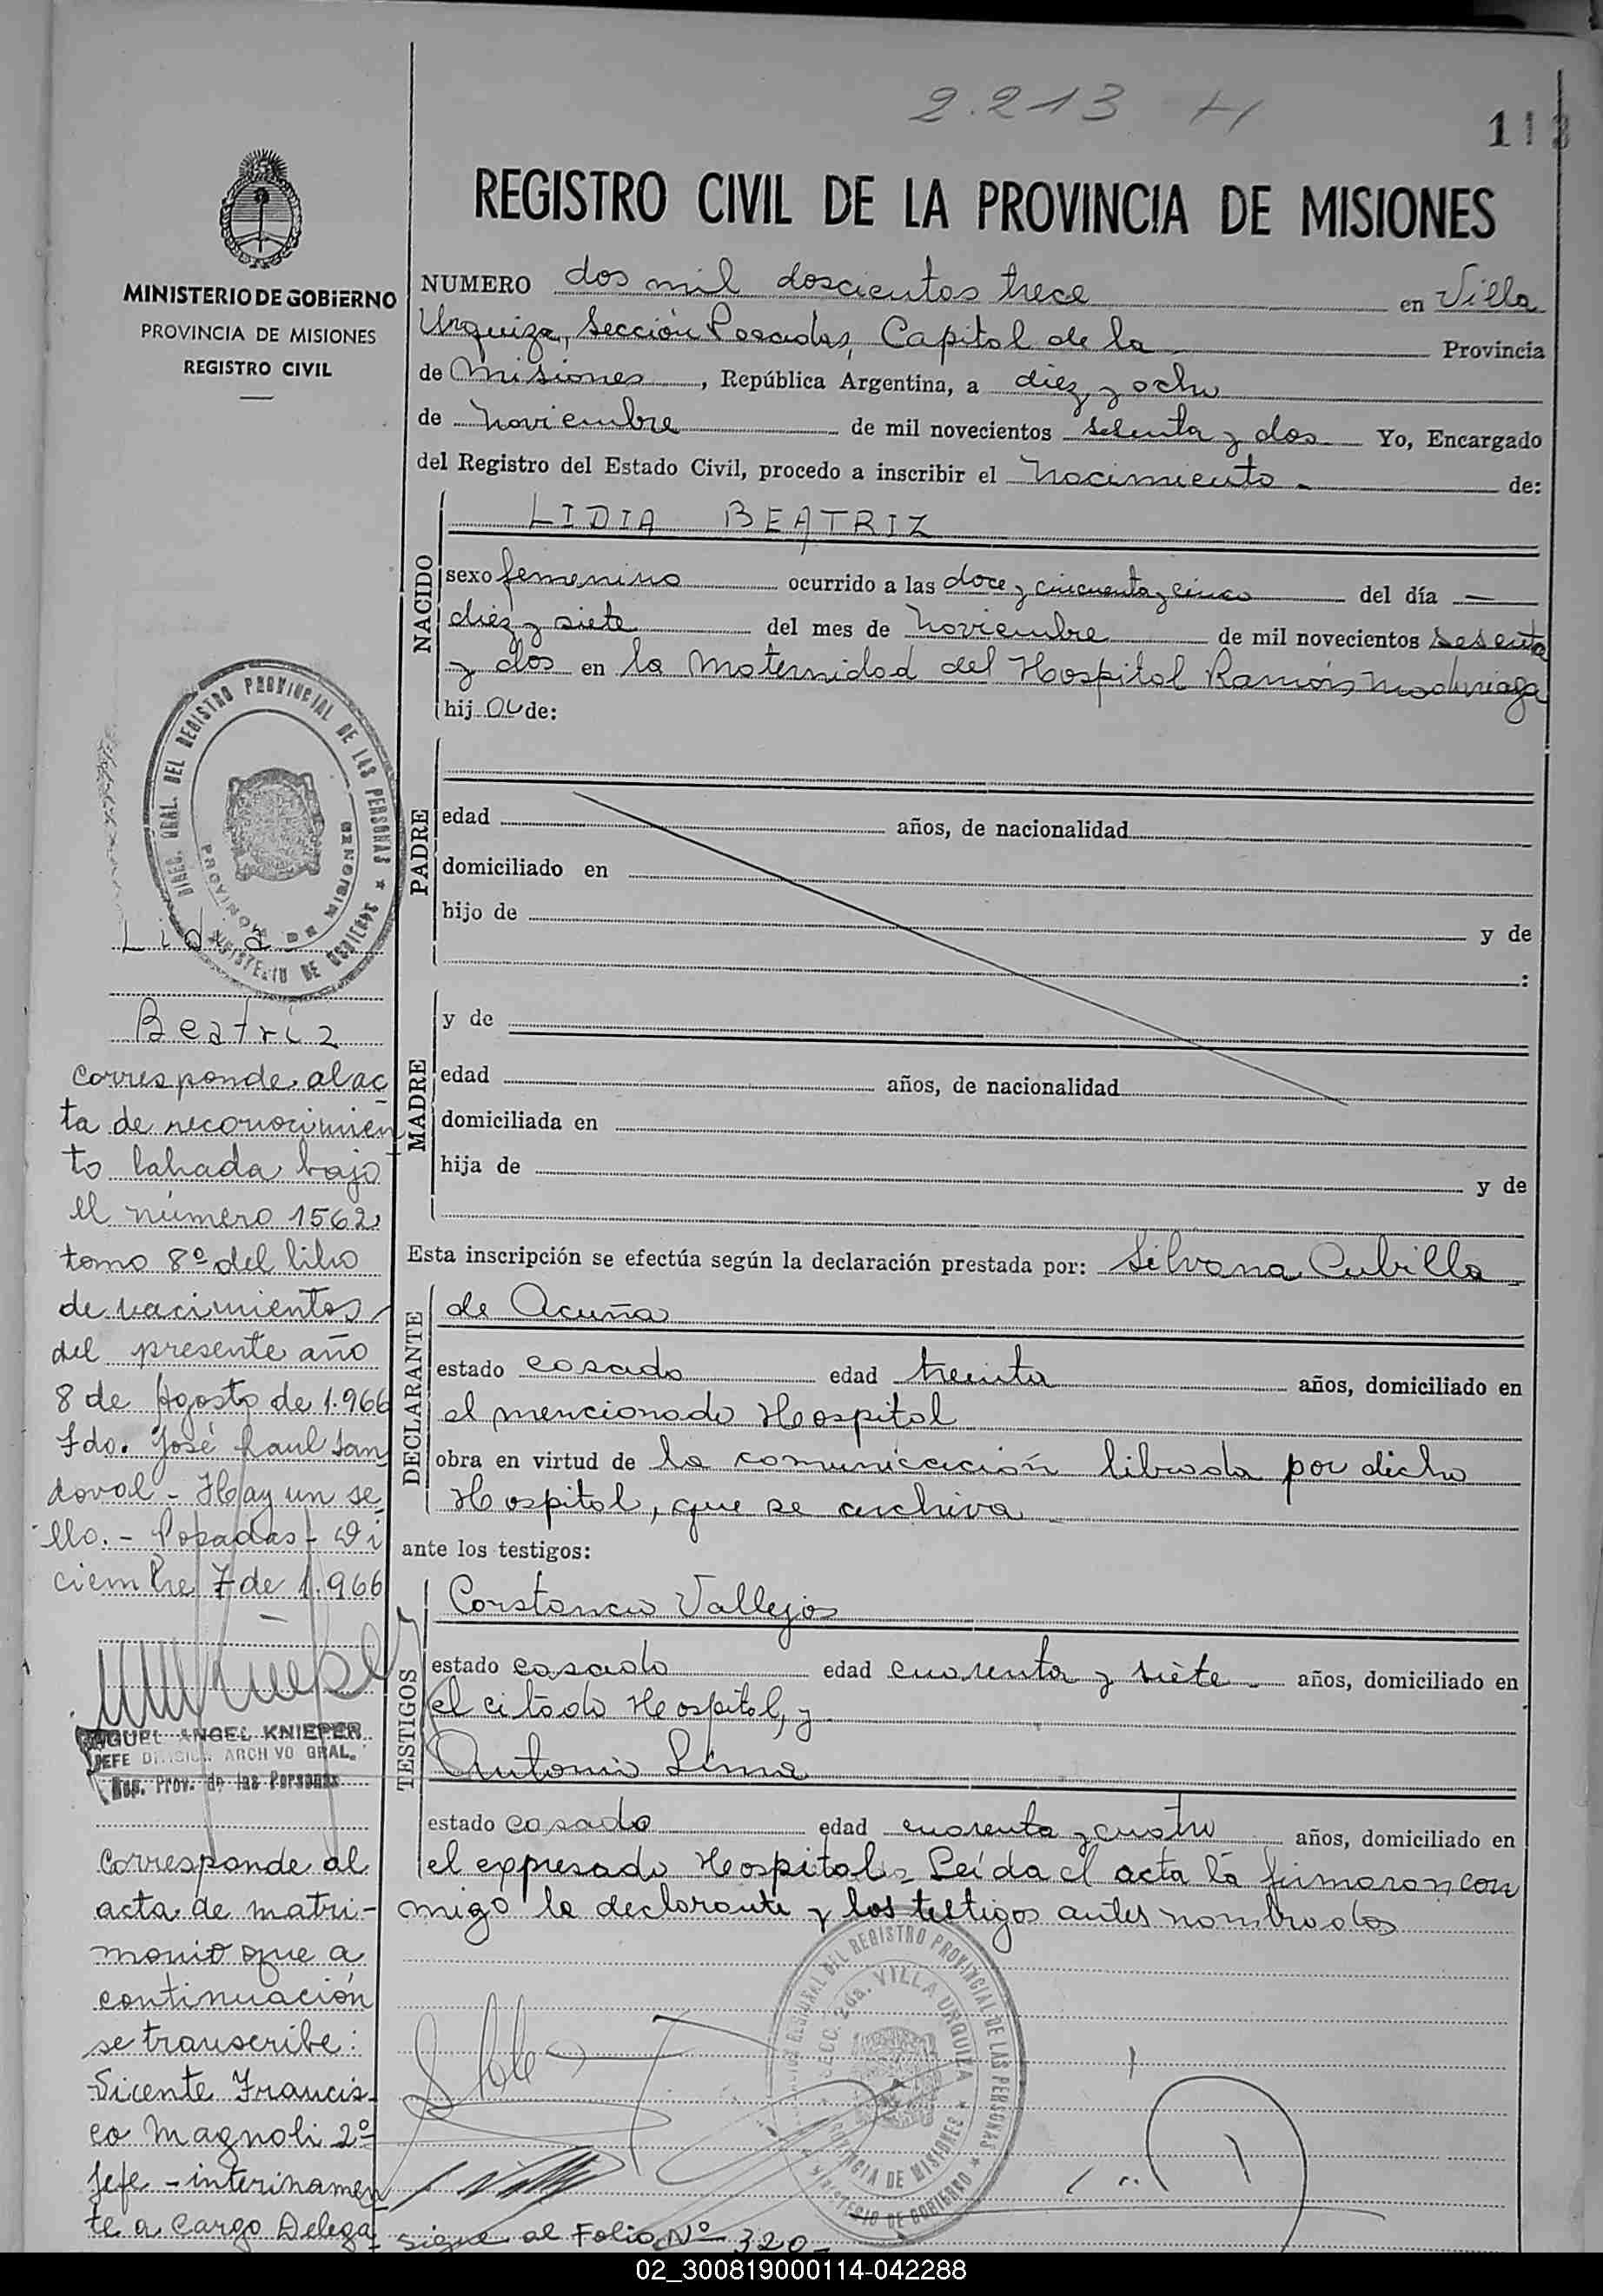 2.213 H
11
REGISTRO CIVIL DE LA PROVINCIA DE MISIONES
MINISTERIO DE GOBIERNO
PROVINCIA DE MISIONES
REGISTRO CIVIL
NUMERO dos mil doscientos trece en Villa
Urquiza, Sección Posadas, Capital de la Provincia
de Misiones, República Argentina, a diez y ocho
de Noviembre de mil novecientos sesenta y dos Yo, Encargado
del Registro del Estado Civil, procedo a inscribir el Nacimiento de:
NACIDO
LIDIA BEATRIZ
sexo femenino ocurrido a las doce y cincuenta y cinco del día
diez y siete del mes de Noviembre de mil novecientos sesenta
y dos en la Maternidad del Hospital Ramón Madariaga
hij de:
PADRE
edad años, de nacionalidad
domiciliado en
hijo de y de
:
MADRE
y de
edad años, de nacionalidad
domiciliada en
hija de y de
Esta inscripción se efectúa según la declaración prestada por: Silvana Cubilla
DECLARANTE
de Acuña
estado casada edad treinta años, domiciliado en
el mencionado Hospital
obra en virtud de la comunicación librada por dicho
Hospital, que se archiva
ante los testigos:
TESTIGOS
Constancio Vallejos
estado casado edad cuarenta y siete años, domiciliado en
el citado Hospital, y
Antonio Lima
estado casado edad cuarenta y cuatro años, domiciliado en
el expresado Hospital. Leída el acta la firmaron con
migo la declarante y los testigos antes nombrados
sigue al Folio Nº 320
DIREC. GRAL. DEL REGISTRO PROVINCIAL DE LAS PERSONAS * MINISTERIO DE GOBIERNO
PROVINCIA DE MISIONES
Lidia
Beatriz
Corresponde al ac
ta de reconocimien
to labrada bajo
el número 1562,
tomo 8º del libro
de nacimientos
del presente año
8 de Agosto de 1.966
Fdo. José Raul San
doval - Hay un se
llo. - Posadas - Di
ciembre 7 de 1.966
MIGUEL ANGEL KNIEPER
JEFE DIVISION ARCHIVO GRAL.
Reg. Prov. de las Personas
Corresponde al
acta de matri-
monio que a
continuación
se transcribe:
Vicente Francis-
co Magnoli 2º
Jefe - interinamen
te a cargo Delega
REGIONAL DEL REGISTRO PROVINCIAL DE LAS PERSONAS * MINISTERIO DE GOBIERNO
SECC. 2da. VILLA URQUIZA * PROVINCIA DE MISIONES
02_300819000114-042288